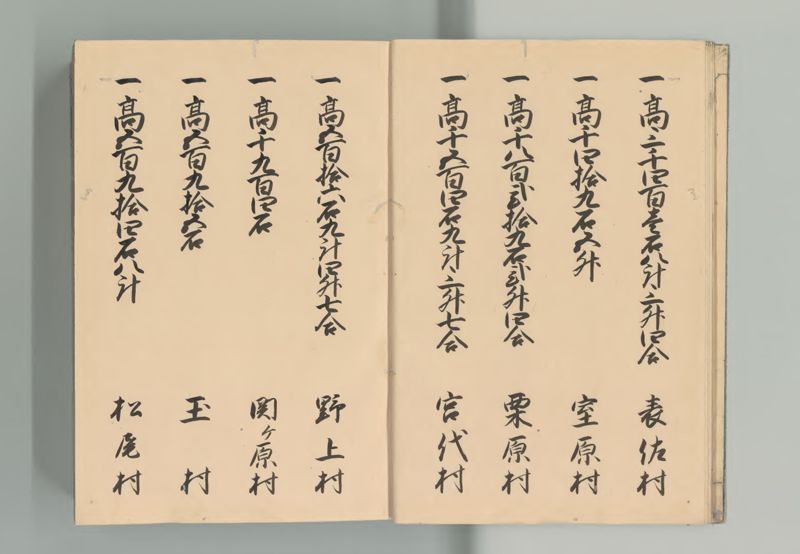 一高三千四百壱石八斗三升四合 表佐村
一高千四拾九石五升 室原村
一高千八百弐拾九石弐升四合 栗原村
一高千五百四石九斗三升七合 宮代村
一高五百拾六石九斗四升七合 野上村
一高千九百四石 関ヶ原村
一高五百九拾五石 玉村
一高五百九拾四石八斗 松尾村